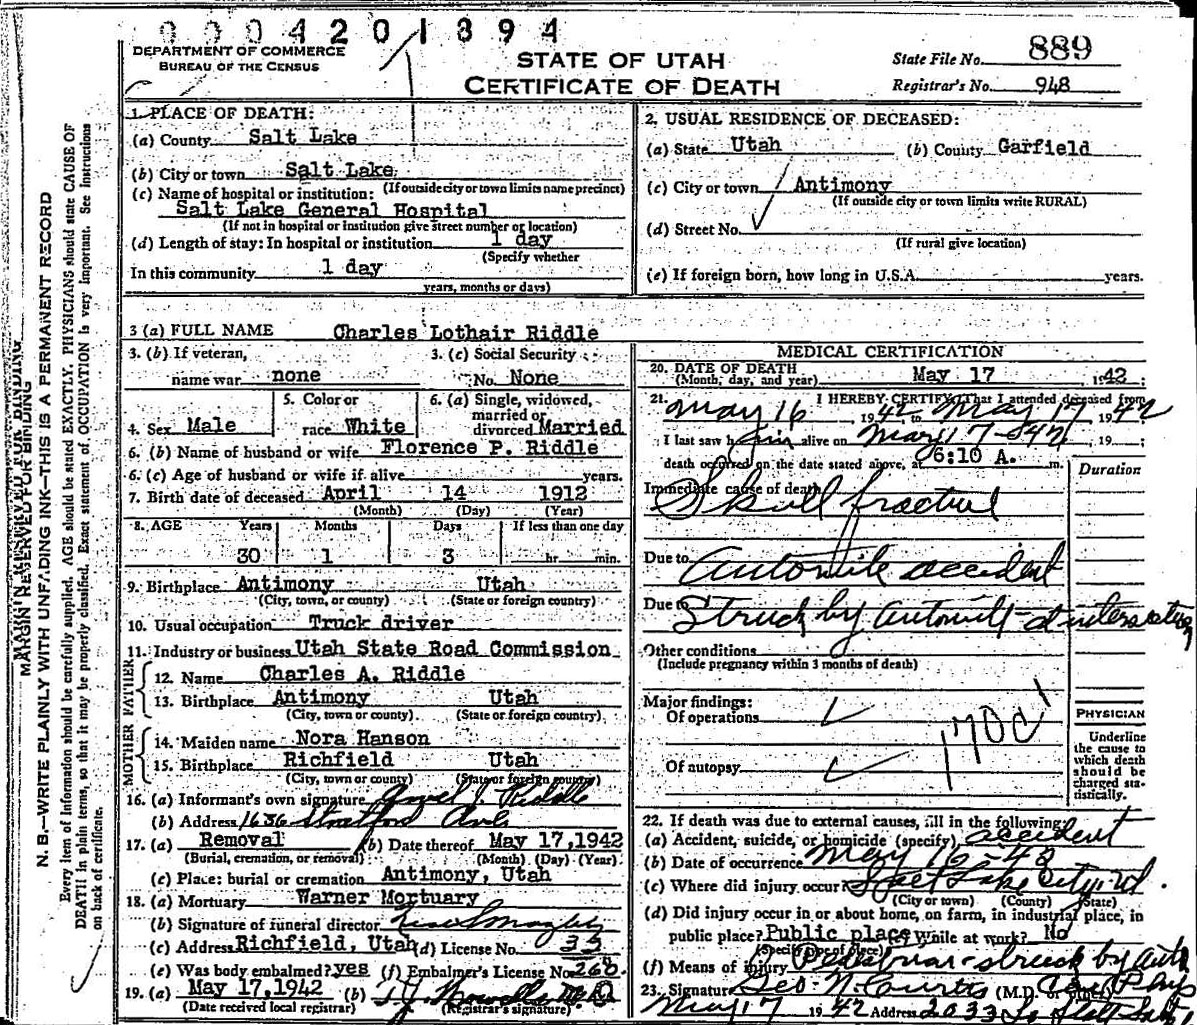 0004201894
DEPARTMENT OF COMMERCE
BUREAU OF THE CENSUS
STATE OF UTAH
CERTIFICATE OF DEATH
State File No. 889
Registrar's No. 948
MARGIN RESERVED FOR BINDING
N. B.—WRITE PLAINLY WITH UNFADING INK—THIS IS A PERMANENT RECORD
Every item of information should be carefully supplied. AGE should be stated EXACTLY. PHYSICIANS should state CAUSE OF
DEATH in plain terms, so that it may be properly classified. Exact statement of OCCUPATION is very important. See Instructions
on back of certificate.
1. PLACE OF DEATH:
(a) County Salt Lake
(b) City or town Salt Lake
(If outside city or town limits name precinct)
(c) Name of hospital or institution:
Salt Lake General Hospital
(If not in hospital or institution give street number or location)
(d) Length of stay: In hospital or institution 1 day
(Specify whether
In this community 1 day
years, months or days)
2. USUAL RESIDENCE OF DECEASED:
(a) State Utah (b) County Garfield
(c) City or town Antimony
(If outside city or town limits write RURAL)
(d) Street No.
(If rural give location)
(e) If foreign born, how long in U.S.A. years.
3 (a) FULL NAME Charles Lothair Riddle
3. (b) If veteran,
name war none
3. (c) Social Security
No. None
4. Sex Male
5. Color or
race White
6. (a) Single, widowed,
married or
divorced Married
6. (b) Name of husband or wife Florence P. Riddle
6. (c) Age of husband or wife if alive years.
7. Birth date of deceased April 14 1912
(Month) (Day) (Year)
8. AGE Years Months Days If less than one day
30 1 3 hr. min.
9. Birthplace Antimony Utah
(City, town, or county) (State or foreign country)
10. Usual occupation Truck driver
11. Industry or business Utah State Road Commission
FATHER
12. Name Charles A. Riddle
13. Birthplace Antimony Utah
(City, town or county) (State or foreign country)
MOTHER
14. Maiden name Nora Hanson
15. Birthplace Richfield Utah
(City, town or county) (State or foreign country)
16. (a) Informant's own signature Riddle
(b) Address 1636 Stratford Ave
17. (a) Removal (b) Date thereof May 17,1942
(Burial, cremation, or removal) (Month) (Day) (Year)
(c) Place: burial or cremation Antimony, Utah
18. (a) Mortuary Warner Mortuary
(b) Signature of funeral director
(c) Address Richfield, Utah (d) License No. 35
(e) Was body embalmed? yes (f) Embalmer's License No. 260
19. (a) May 17,1942 (b)
(Date received local registrar) (Registrar's signature)
MEDICAL CERTIFICATION
20. DATE OF DEATH
(Month, day, and year) May 17 1942
21. I HEREBY CERTIFY, That I attended deceased from
May 16, 1942 to May 17 1942
I last saw him alive on May 17-1942, 19
death occurred on the date stated above, at 6:10 A. m.
Duration
Immediate cause of death
Skull fracture
Due to Automobile accident
Due to Struck by automobile at intersection
Other conditions
(Include pregnancy within 3 months of death)
Major findings:
Of operations
Of autopsy
170c
PHYSICIAN
Underline
the cause to
which death
should be
charged sta-
tistically.
22. If death was due to external causes, fill in the following:
(a) Accident, suicide, or homicide (specify) accident
(b) Date of occurrence May 16-42
(c) Where did injury occur? Salt Lake City, Ut.
(City or town) (County) (State)
(d) Did injury occur in or about home, on farm, in industrial place, in
public place? Public place While at work? No
(Specify type of place)
(f) Means of injury Pedestrian-struck by auto
23. Signature Geo. N. Curtis (M.D. or other) Co. Phys
May 17 1942 Address 2033 So State